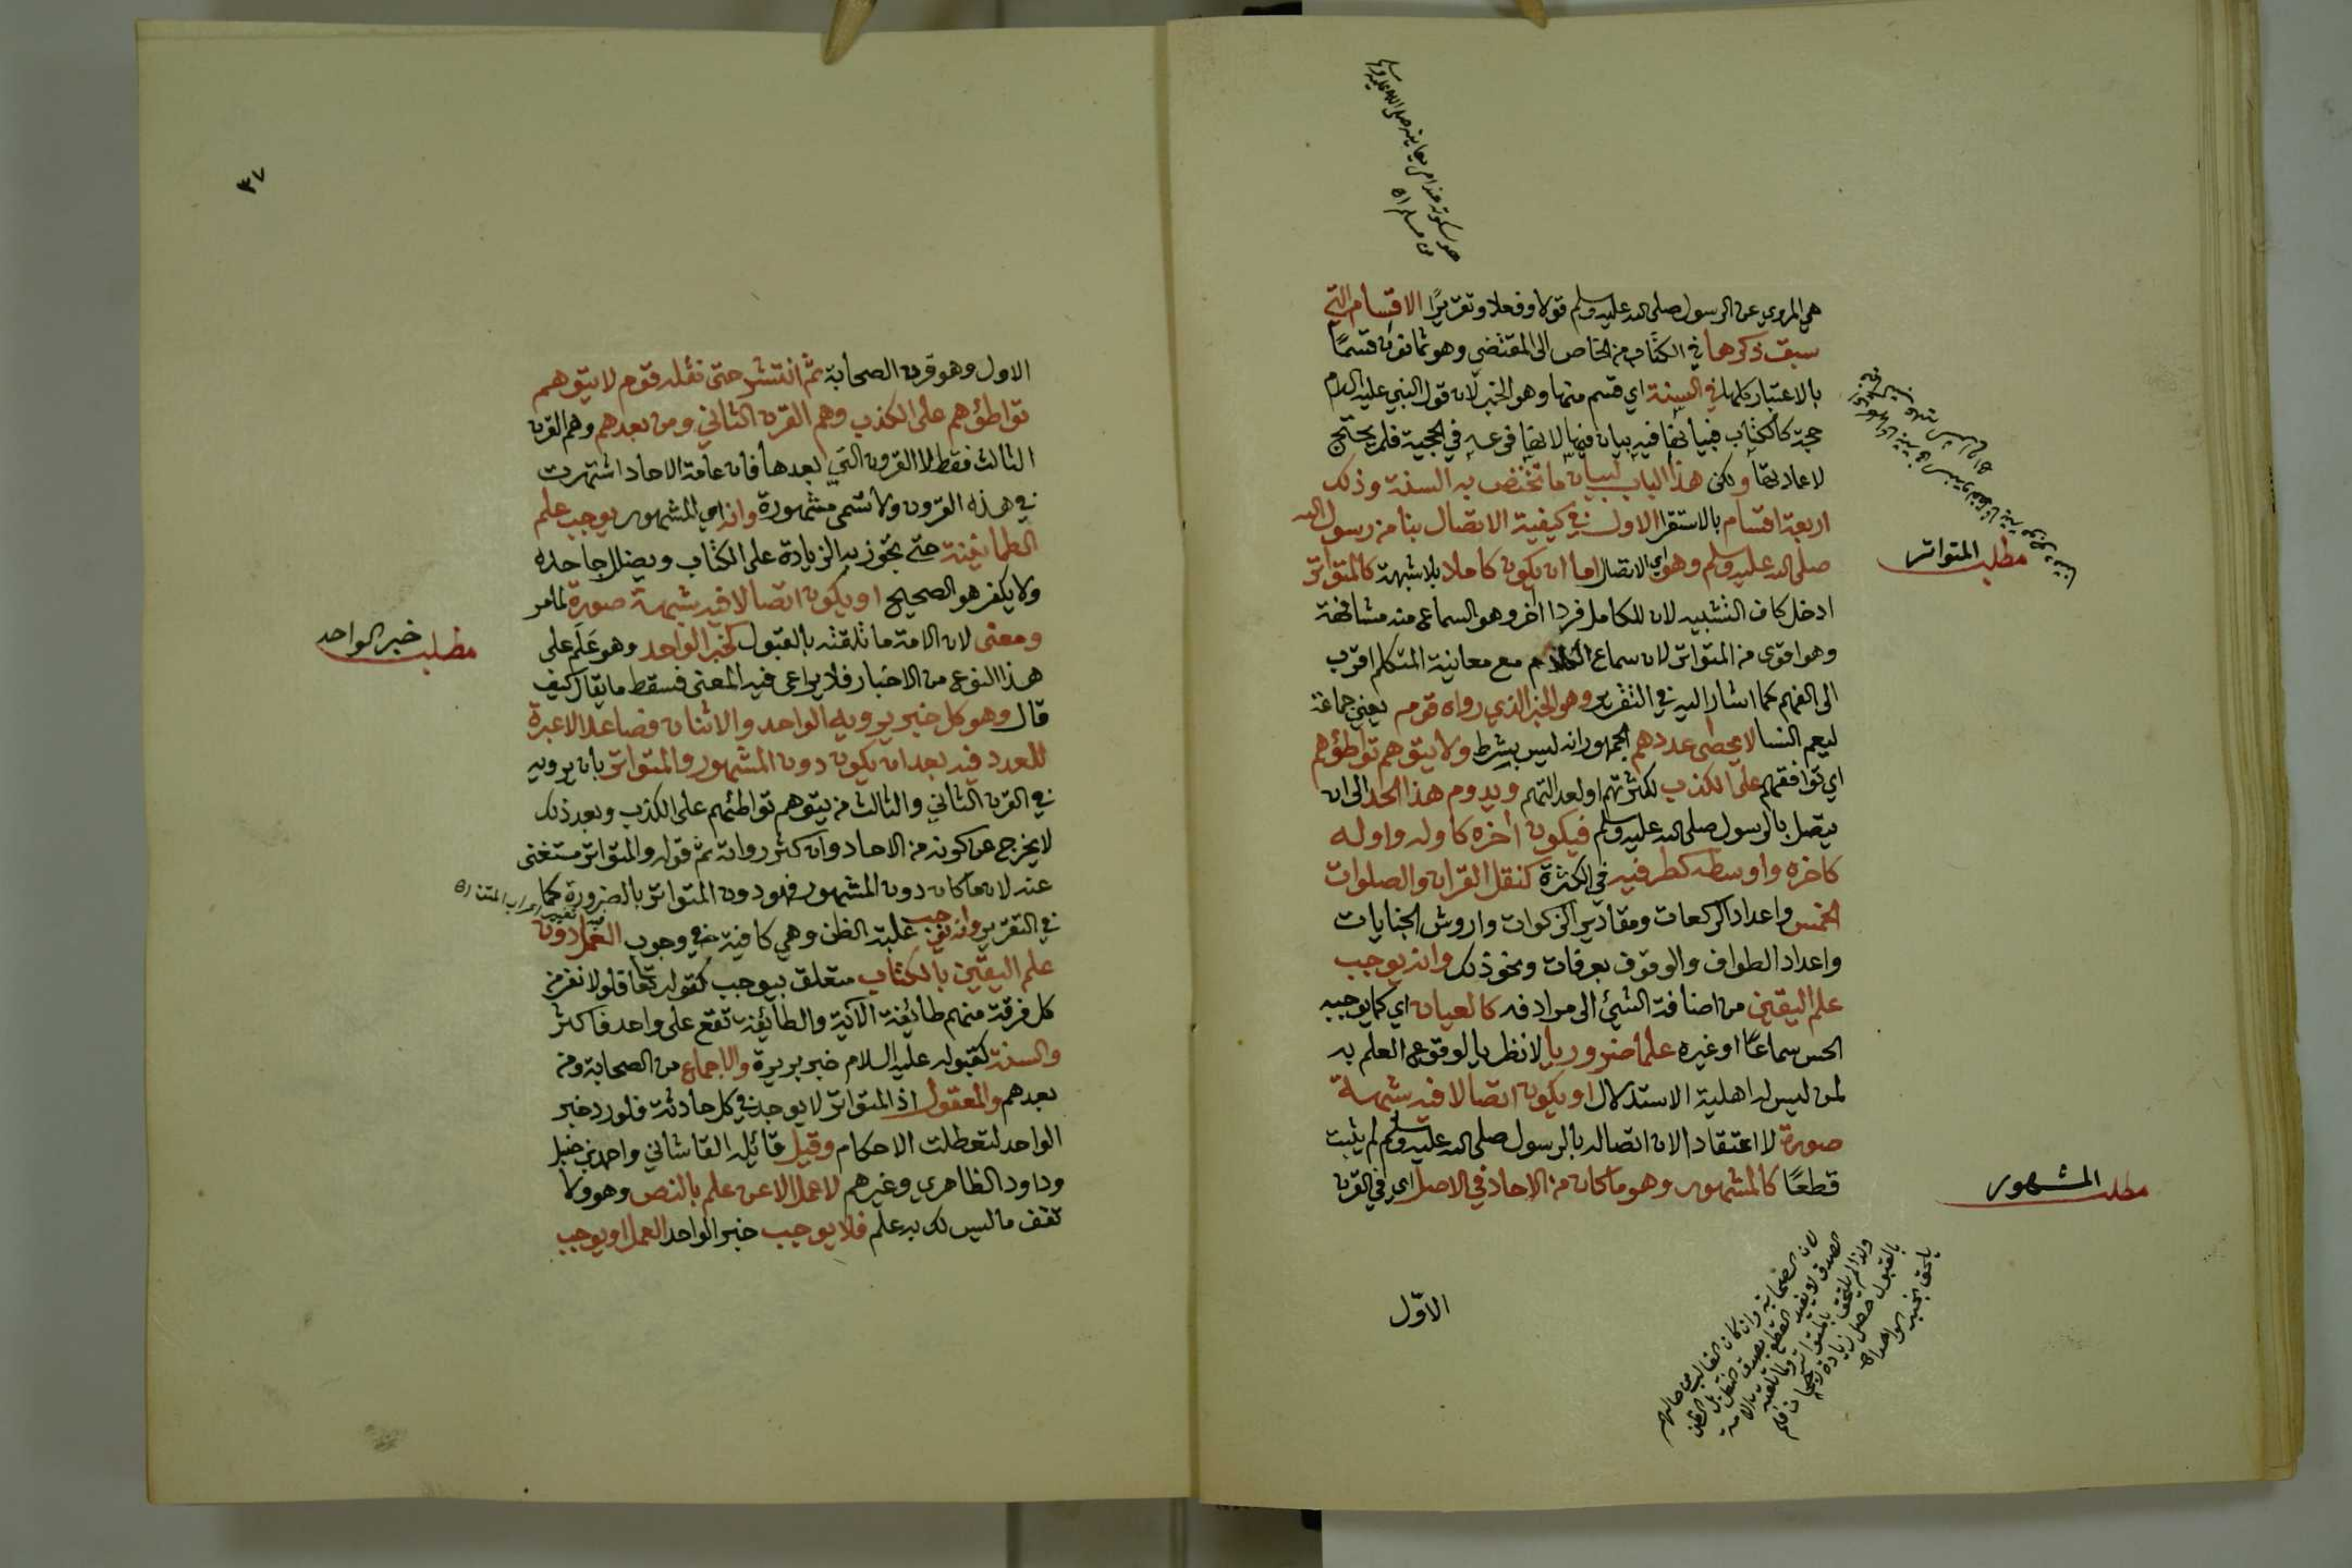 هي المروي عن الرسول صلى الله عليه وسلم قولا وفعلا وتقريرًا الاقسام التي
سبق ذكرها في الكتاب من الخاص الى المقتضي وهو ثمانون قسمًا
بالاعتبار كلها في السنة اي قسم منها وهو الخبر لان قول النبي عليه السلام
حجة كالكتاب فبيانها فيه بيان فيها لانها فرعه في الحجية فلم يحتج
لاعادتها ولكن هذا الباب لبيان ما تختص به السنة وذلك
اربعة اقسام بالاستقرا الاول في كيفية الاتصال بنا من رسول الله
صلى الله عليه وسلم وهو اي الاتصال اما ان يكون كاملا بلا شبهة كالمتواتر
ادخل كاف التشبيه لان للكامل فردا اخر وهو السماع منه مشافهة
وهو اقوى من المتواتر لان سماع الكلام مع معاينة المتكلم اقرب
الى الفهم كما اشار اليه في التقرير وهو الخبر الذي رواه قوم يعني جماعة
ليعم النسا لا يحصى عددهم الجمهور انه ليس بشرط ولا يتوهم تواطؤهم
اي توافقهم على الكذب لكثرتهم او لعدالتهم ويدوم هذا الحد الى ان
يتصل بالرسول صلى الله عليه وسلم فيكون اخره كاوله واوله
كاخره واوسطه كطرفيه في الكثرة كنقل القران والصلوات
الخمس واعداد الركعات ومقادير الزكوات واروش الجنايات
واعداد الطواف والوقوف بعرفات ونحو ذلك وانه يوجب
علم اليقين من اضافة الشيئ الى مرادفه كالعيان اي كما يوجبه
الحس سماعًا او غيره علما ضروريا لا نظريا لوقوع العلم به
لمن ليس له اهلية الاستدلال او يكون اتصالا فيه شبهة
صورة لا اعتقادا لان اتصاله بالرسول صلى الله عليه وسلم لم يثبت
قطعًا كالمشهور وهو ما كان من الاحاد في الاصل اي في القرن
الاوّل
مطلب المتواتر
مطلب المشهور
هو سكوته عند امر يعاينه صلى الله عليه وسلم
من مسلم اه
لان الصحابة وان كان الغالب من حالهم
الصدق لا يفيد القطع بصدق
ولذا لم يلتحق بالمتواتر
بالقبول حصل زيادة رجحان فلم
يلحق بخبر الواحد اه
٣٧
الاول وهو قرن الصحابة ثم انتشر حتى نقله قوم لا يتوهم
تواطؤهم على الكذب وهم القرن الثاني ومن بعدهم وهم القرن
الثالث فقط لا القرون التي بعدها فان عامة الاحاد اشتهرت
في هذه القرون ولا تسمى مشهورة وانه اي المشهور يوجب علم
الطمانينة حتى تجوز به الزيادة على الكتاب ويضلل جاحده
ولا يكفر هو الصحيح او يكون اتصالا فيه شبهة صورة لما مر
ومعنى لان الامة ما تلقته بالقبول كخبر الواحد وهو عَلَم على
هذا النوع من الاخبار فلا يراعى فيه المعنى فسقط ما يقال كيف
قال وهو كل خبر يرويه الواحد والاثنان فصاعدا لا عبرة
للعدد فيه بعد ان يكون دون المشهور والمتواتر بان يرويه
في القرن الثاني والثالث من يتوهم تواطئهم على الكذب وبعد ذلك
لا يخرج عن كونه من الاحاد وان كثر رواته ثم قوله والمتواتر مستغنى
عنه لان ما كان دون المشهور فهو دون المتواتر بالضرورة كما
في التقرير وانه يوجب غلبة الظن وهي كافية في وجوب العمل دون
علم اليقين بالكتاب متعلق بيوجب كقوله تعا فلولا نفر من
كل فرقة منهم طائفة الآية والطائفة تقع على واحد فاكثر
والسنة كقبوله عليه السلام خبر بريرة والاجماع من الصحابة ومن
بعدهم والمعقول اذ المتواتر لا يوجد في كل حادثة فلو رد خبر
الواحد لتعطلت الاحكام وقيل قائله القاشاني واحمد بن حنبل
وداود الظاهري وغيرهم لا عمل الا عن علم بالنص وهو ولا
تقف ما ليس لك به علم فلا يوجب خبر الواحد العمل او يوجب
مطلب خبر الواحد
فيه تغيير اعراب المتن اه